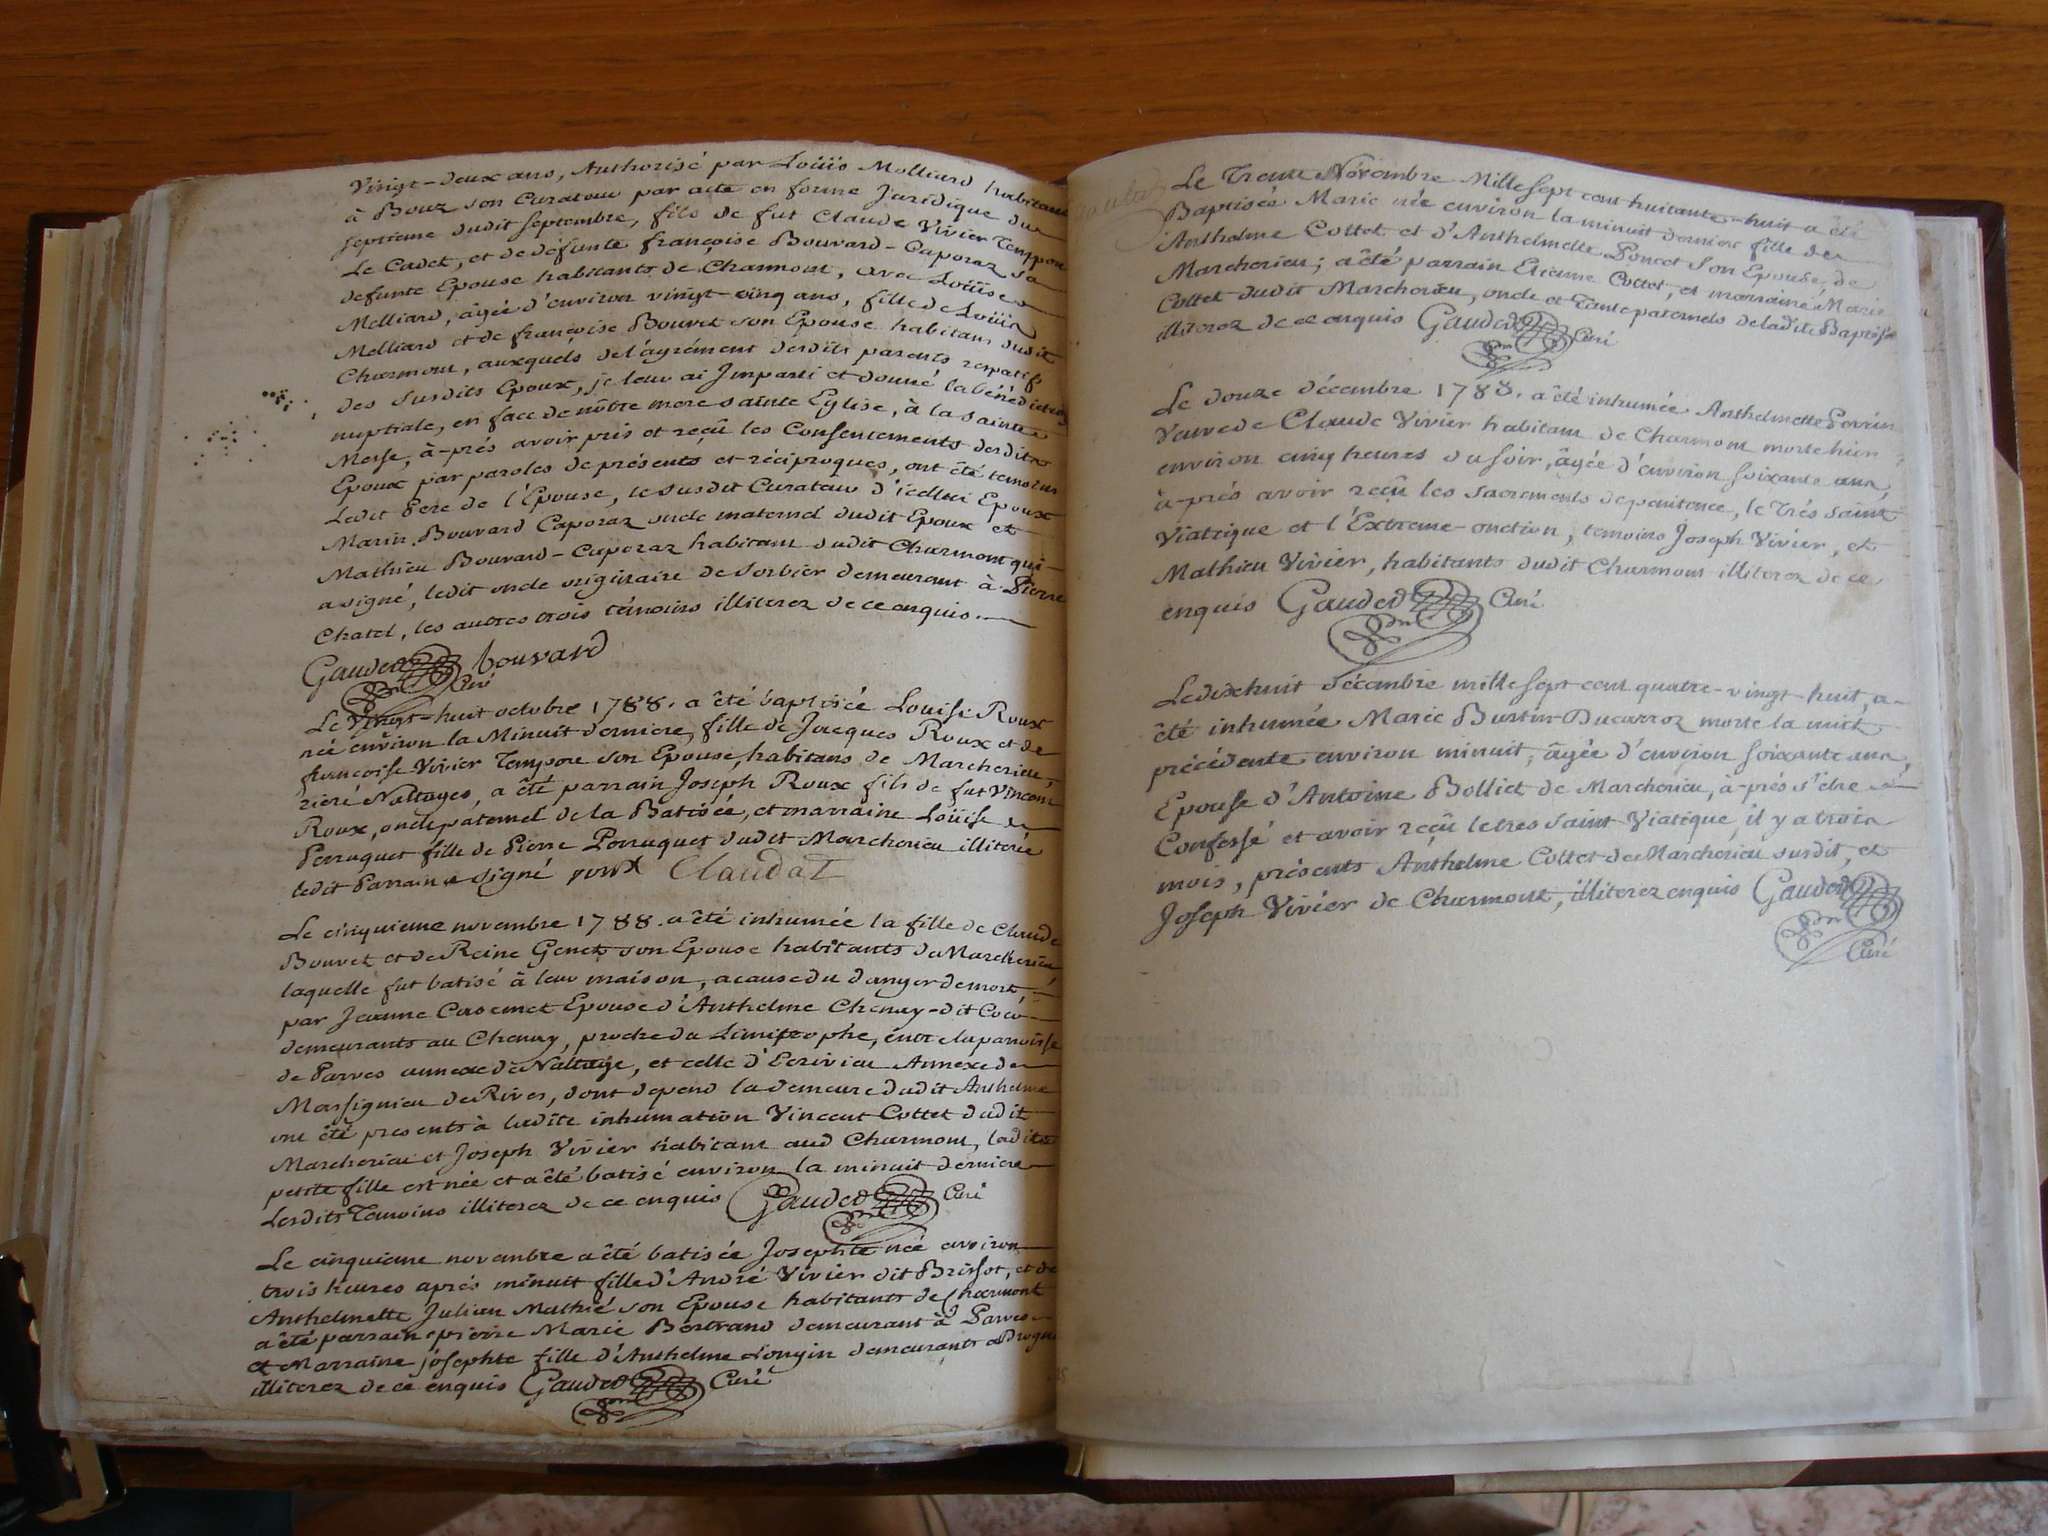 Vingt-deux ans, Authorisé par Loüis Molliard habitant
à Bouz son Curateur par acte en forme Juridique du
septieme dudit septembre, fils de fut Claude Vivier Temppore
Le Cadet, et de défunte françoise Bouvard-Caporaz sa
defunte Epouse habitants de Charmont, avec Loüise
Molliard, âgée d'environ vingt-cinq ans, fille de Loüis
Molliard et de françoise Bouvet son Epouse habitans dudit
Charmont, auxquels de l'agrément desdits parents respectifs
des susdits Epoux, je leur ai Imparti et donné la bénédiction
nuptiale, en face de nôtre mere sainte Eglise, à la sainte
Messe, à-prés avoir pris et reçû les Consentements desdits
Epoux par paroles de présents et réciproques, ont été temoins
Ledit Pere de l'Epouse, le susdit Curateur d'icellui Epoux
Marin Bouvard Caporaz oncle maternel dudit Epoux et
Mathieu Bouvard-Caporaz habitant dudit Charmont qui
a signé, ledit oncle originaire de Sorbier demeurant à Pierre
Chatel, les autres trois témoins illiterez de ce enquis.
Gauded bouvard
Curé
Le Vingt-huit octobre 1788. a été baptisée Louise Roux
née environ la Minuit derniere, fille de Jacques Roux et de
françoise Vivier Tempore son Epouse, habitans de Marcherieu,
rieré Nattages, a été parrain Joseph Roux fils de fut Vincent
Roux, oncle paternel de la Batisée, et marraine Loüise
Perruquet fille de Pierre Perruquet dudit Marcherieu illiterée
ledit Parrain a signé roux Claudat
Le cinquieme novembre 1788. a été inhumée la fille de Claude
Bouvet et de Reine Genet son Epouse habitants de Marcherieu,
laquelle fut batisé à leur maison, a cause du danger de mort,
par Jeanne Casemet Epouse d'Anthelme Chenay-dit Coco
demeurants au Chenay, proche du Limitrophe, entre la parroisse
de Parves annexe de Nattage, et celle d'Ecrivieu Annexe de
Massignieu de Rives, dont depend la demeure dudit Anthelme
ont été presents à ladite inhumation Vincent Cottet dudit
Marcherieu et Joseph Vivier habitant aud Charmont, ladite
petite fille est née et a été batisé environ la minuit derniere
Lesdits Temoins illiterez de ce enquis Gauded Curé
Le cinquieme novembre a été batisée Josephte née environ
trois heures aprés minuit fille d'André Vivier dit Brissot, et de
Anthelmette Julian Mathié son Epouse habitants de Charmont
a été parrain pierre Marie Bertrand demeurant à Parves
et Marraine josephte fille d'Anthelme Longin demeurants a
illiterez de ce enquis Gauded Curé
Le Trente Novembre Mille sept cent huitante-huit a été
Baptisée Marie née environ la minuit derniere fille de
Anthelme Cottet et d'Anthelmette Poncet son Epouse, de
Marcherieu; a été parrain Etienne Cottet, et marraine Marie
Cottet dudit Marcherieu, oncle et Tante paternels de ladite Baptisée
illiterez de ce enquis Gauded Curé
Le douze décembre 1788. a été inhumée Anthelmette Perrin
Veuve de Claude Vivier habitant de Charmont morte hier
environ cinq heures du soir, âgée d'environ soixante ans,
à-prés avoir reçû les sacrements de penitence, le Trés saint
Viatique et l'Extreme-onction, temoins Joseph Vivier, et
Mathieu Vivier, habitants dudit Charmont illiterez de ce
enquis Gauded Curé
Le dixhuit décembre mille sept cent quatre-vingt-huit, a
été inhumée Marie Burtin-Ducarroz morte la nuit
précédente environ minuit, âgée d'environ soixante ans,
Epouse d'Antoine Bolliet de Marcherieu, à-prés s'être
Confessé et avoir reçû le tres saint Viatique, il y a trois
mois, présents Anthelme Cottet de Marcherieu susdit, et
Joseph Vivier de Charmont, illiterez enquis Gauded
Curé